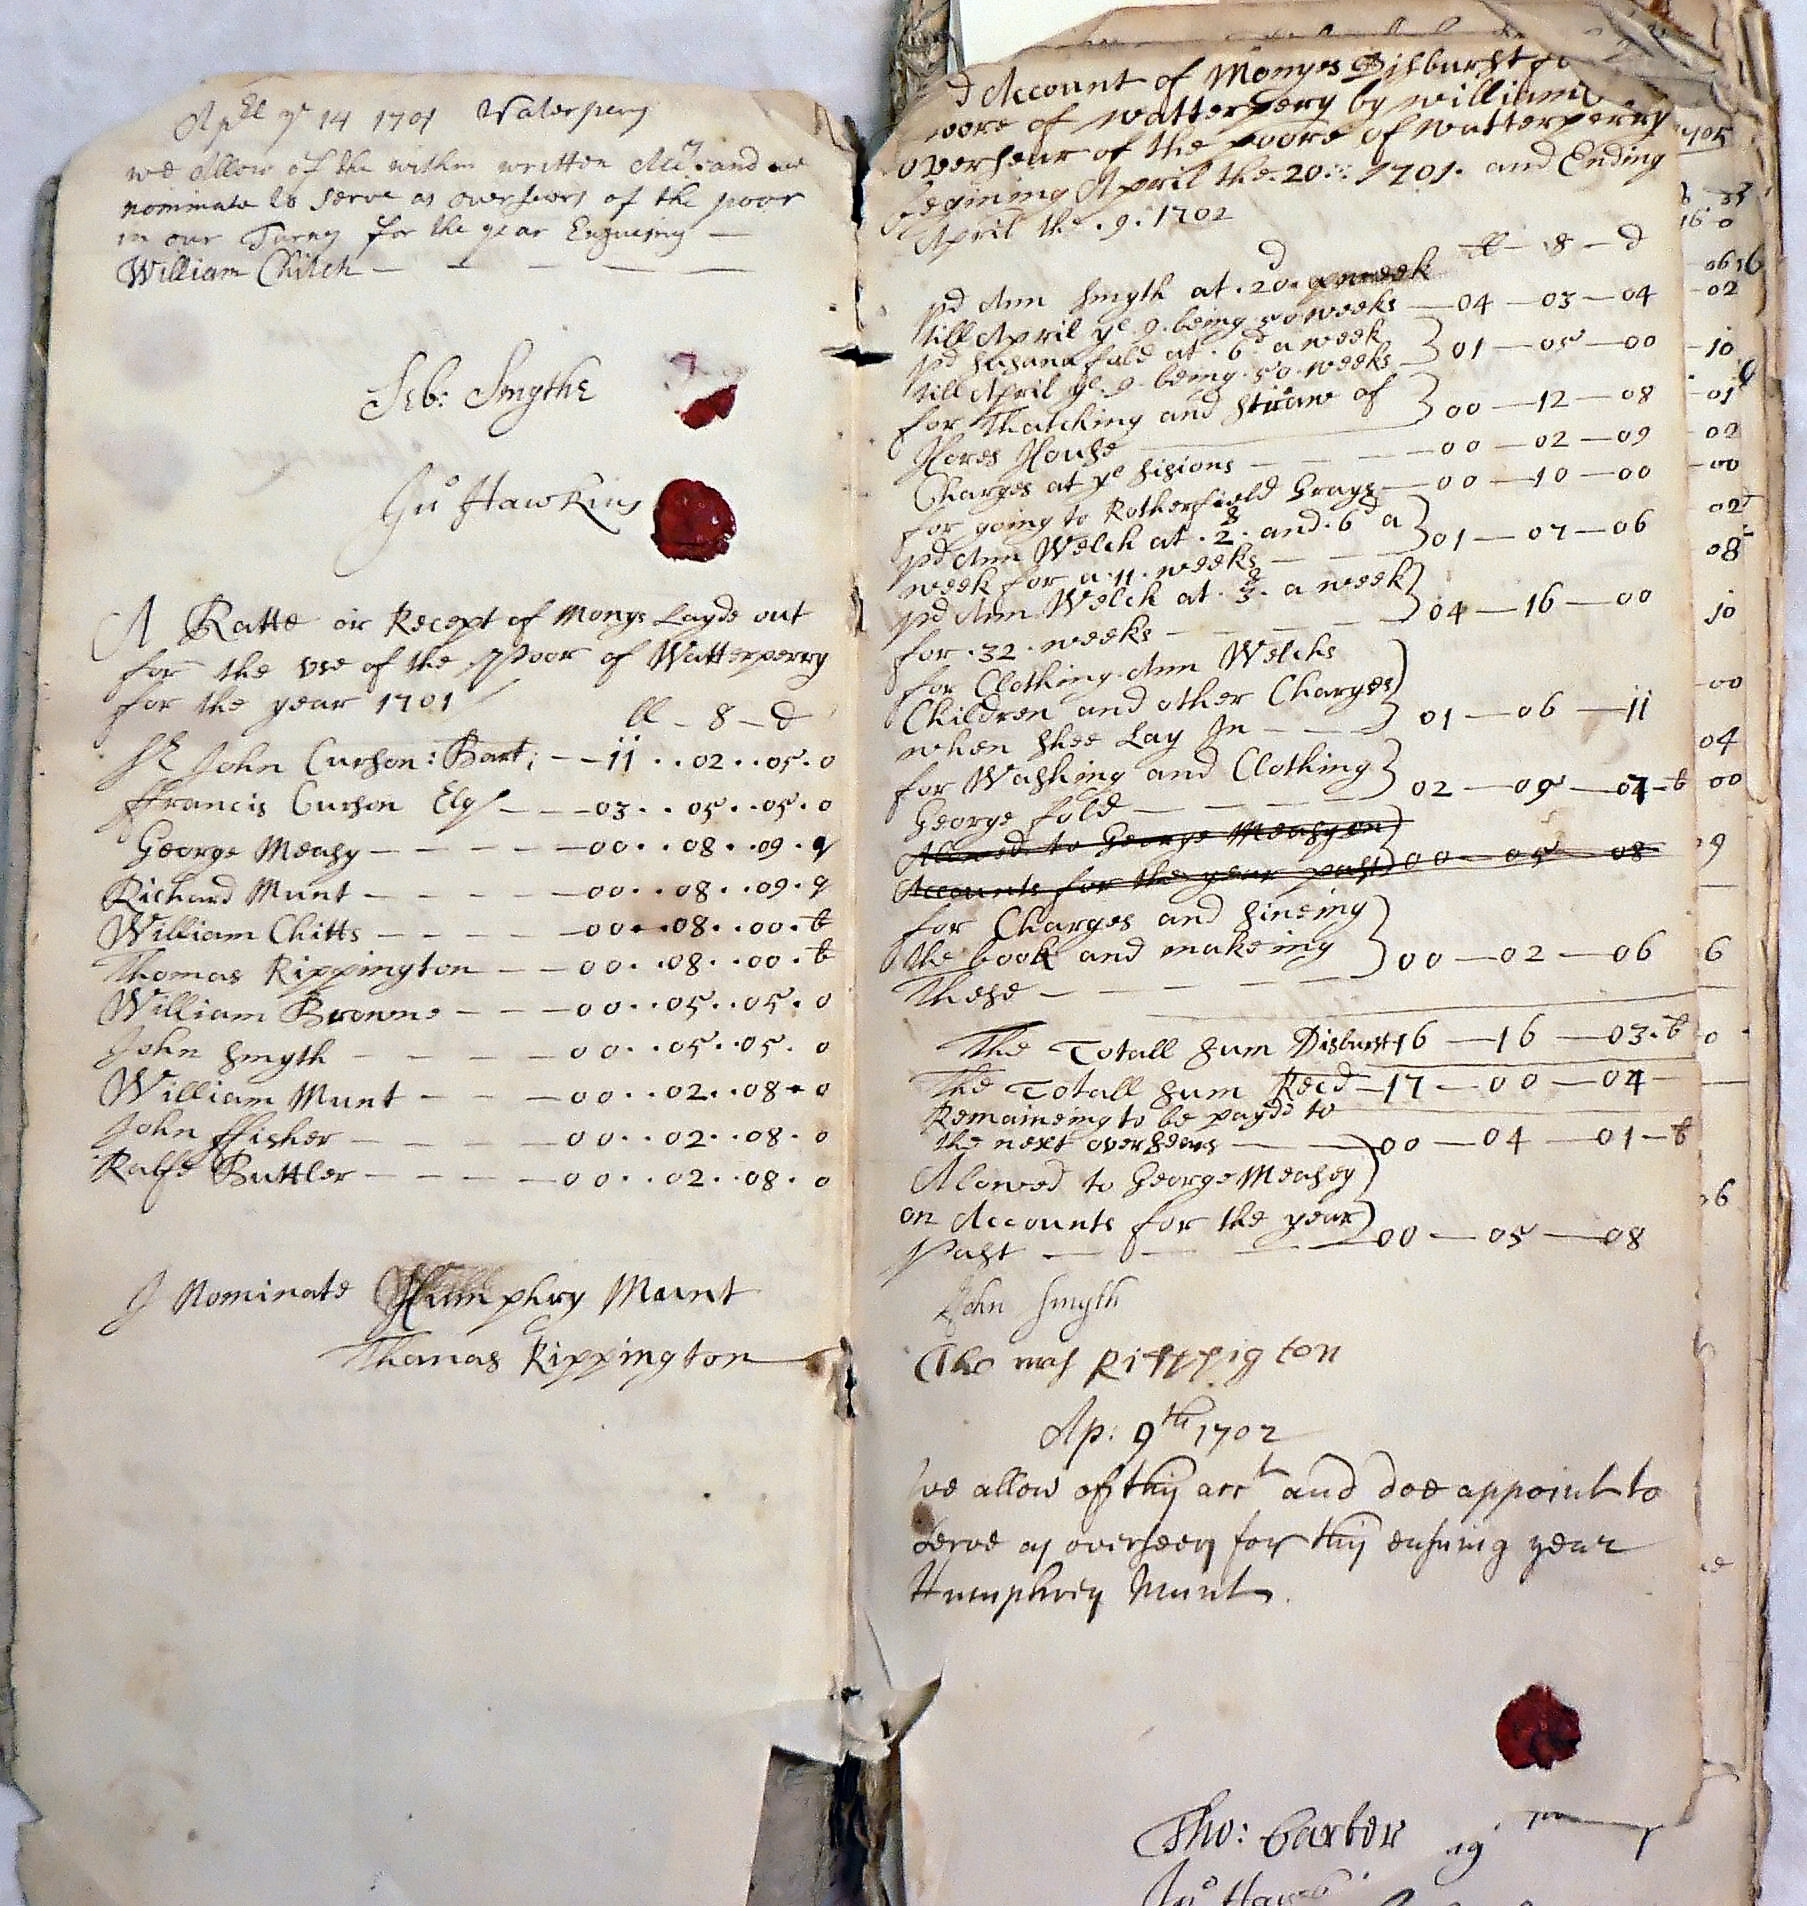 Apll ye 14 1701 Waterpery
we allow of the within written Act: and we
nominate to serve as overseers of the poor
in our Turn for the year Ensueing —
William Chitch — — — — —
Seb: Smythe
Jno Hawkins
A Ratte or Recept of Monys Layde out
for the use of the Poor of Watterperry
for the year 1701
ll - s - d
Sr John Curson: Bart; — — 11 . . 02 . . 05 . 0
ffrancis Curson Esqr — — — 03 . . 05 . . 05 . 0
George Measy — — — — — 00 . . 08 . . 09 . q
Richard Munt — — — — — 00 . . 08 . . 09 . q
William Chitts — — — — — 00 . . 08 . . 00 . b
Thomas Rippington — — 00 . . 08 . . 00 . b
William Browne — — — 00 . . 05 . . 05 . 0
John Smyth — — — — — 00 . . 05 . . 05 . 0
William Munt — — — 00 . . 02 . . 08 . 0
John ffisher — — — — — 00 . . 02 . . 08 . 0
Ralfe Buttler — — — — — 00 . . 02 . . 08 . 0
I Nominate Humphry Munt
Thomas Rippington
d Account of Monyes Disburst
poore of Watterpery by William
overseur of the poore of Watterperry
Begining April the . 20 :: 1701 . and Ending
April the . 9 . 1702
ll — s — d
pd Ann Smyth at . 20 d . a week
till April ye . 9 . being . 50 weeks — 04 — 03 — 04
pd Susana fold at . 6 d a week
till April ye . 9 . being . 50 . weeks — 01 — 05 — 00
for Thatching and Straw of
Hores House — 00 — 12 — 08
Charges at ye Sisions — — — 00 — 02 — 09
for going to Rotherfield Grays — 00 — 10 — 00
pd Ann Welch at . 2 s . and . 6 d a
week for a . 11 . weeks — — — 01 — 07 — 06
pd Ann Welch at . 3 s . a week
for . 32 . weeks — — — — 04 — 16 — 00
for Clothing Ann Welchs
Children and other Charges
when shee Lay In — — — 01 — 06 — 11
for Washing and Clothing
George fold — — — — 02 — 09 — 07 — b
Alowed to George Measy on
Accounts for the year past 00 — 05 — 08
for Charges and Sineing
the book and makeing
These — — — — — 00 — 02 — 06
The Totall Sum Disburst 16 — 16 — 03 . b
The Totall Sum Recd — 17 — 00 — 04
Remaineing to be payde to
the next overseers — — 00 — 04 — 01 — b
Alowed to George Measey
on Accounts for the year
Past — — — — 00 — 05 — 08
John Smyth
Thomas Rippigton
Ap: 9th 1702
We allow of this acct and doe appoint to
Serve as overseers for this ensuing year
Humphrey Munt
Tho: Carter
Jno Haw